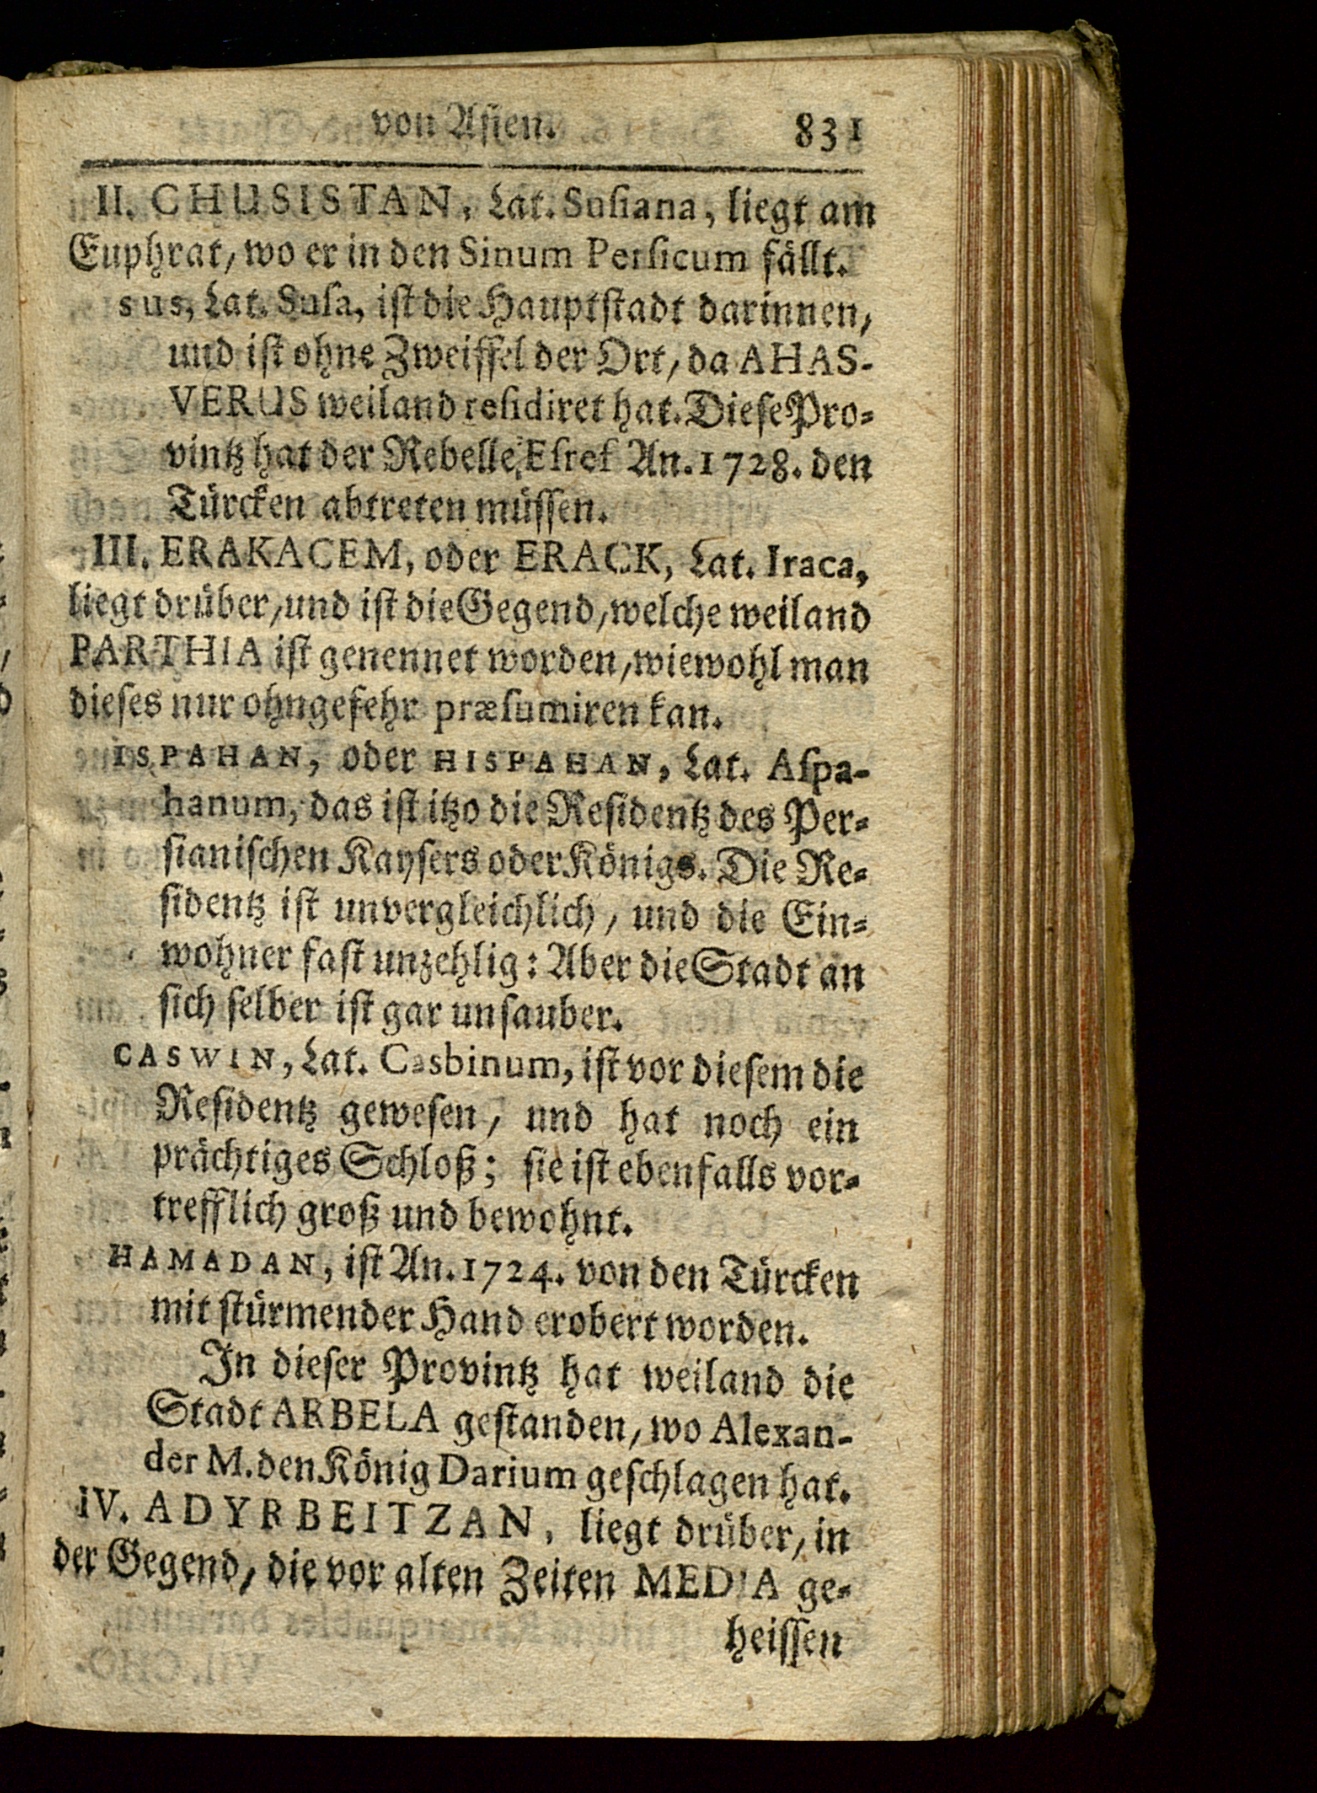 von Asien. 831
II. CHUSISTAN, Lat. Susiana, liegt am
Euphrat, wo er in den Sinum Persicum fällt.
SUS, Lat. Susa, ist die Hauptstadt darinnen,
und ist ohne Zweiffel der Ort, da AHAS-
VERUS weiland residiret hat. Diese Pro-
vintz hat der Rebelle, Esref An. 1728. den
Türcken abtreten müssen.
III. ERAKACEM, oder ERACK, Lat. Iraca,
liegt drüber, und ist die Gegend, welche weiland
PARTHIA ist genennet worden, wiewohl man
dieses nur ohngefehr præsumiren kan.
ISPAHAN, oder HISPAHAN, Lat. Aspa-
hanum, das ist itzo die Residentz des Per-
sianischen Kaysers oder Königs. Die Re-
sidentz ist unvergleichlich, und die Ein-
wohner fast unzehlig: Aber die Stadt an
sich selber ist gar unsauber.
CASWIN, Lat. Casbinum, ist vor diesem die
Residentz gewesen, und hat noch ein
prächtiges Schloß; sie ist ebenfalls vor-
trefflich groß und bewohnt.
HAMADAN, ist An. 1724. von den Türcken
mit stürmender Hand erobert worden.
In dieser Provintz hat weiland die
Stadt ARBELA gestanden, wo Alexan-
der M. den König Darium geschlagen hat.
IV. ADYRBEITZAN, liegt drüber, in
der Gegend, die vor alten Zeiten MEDIA ge-
heissen